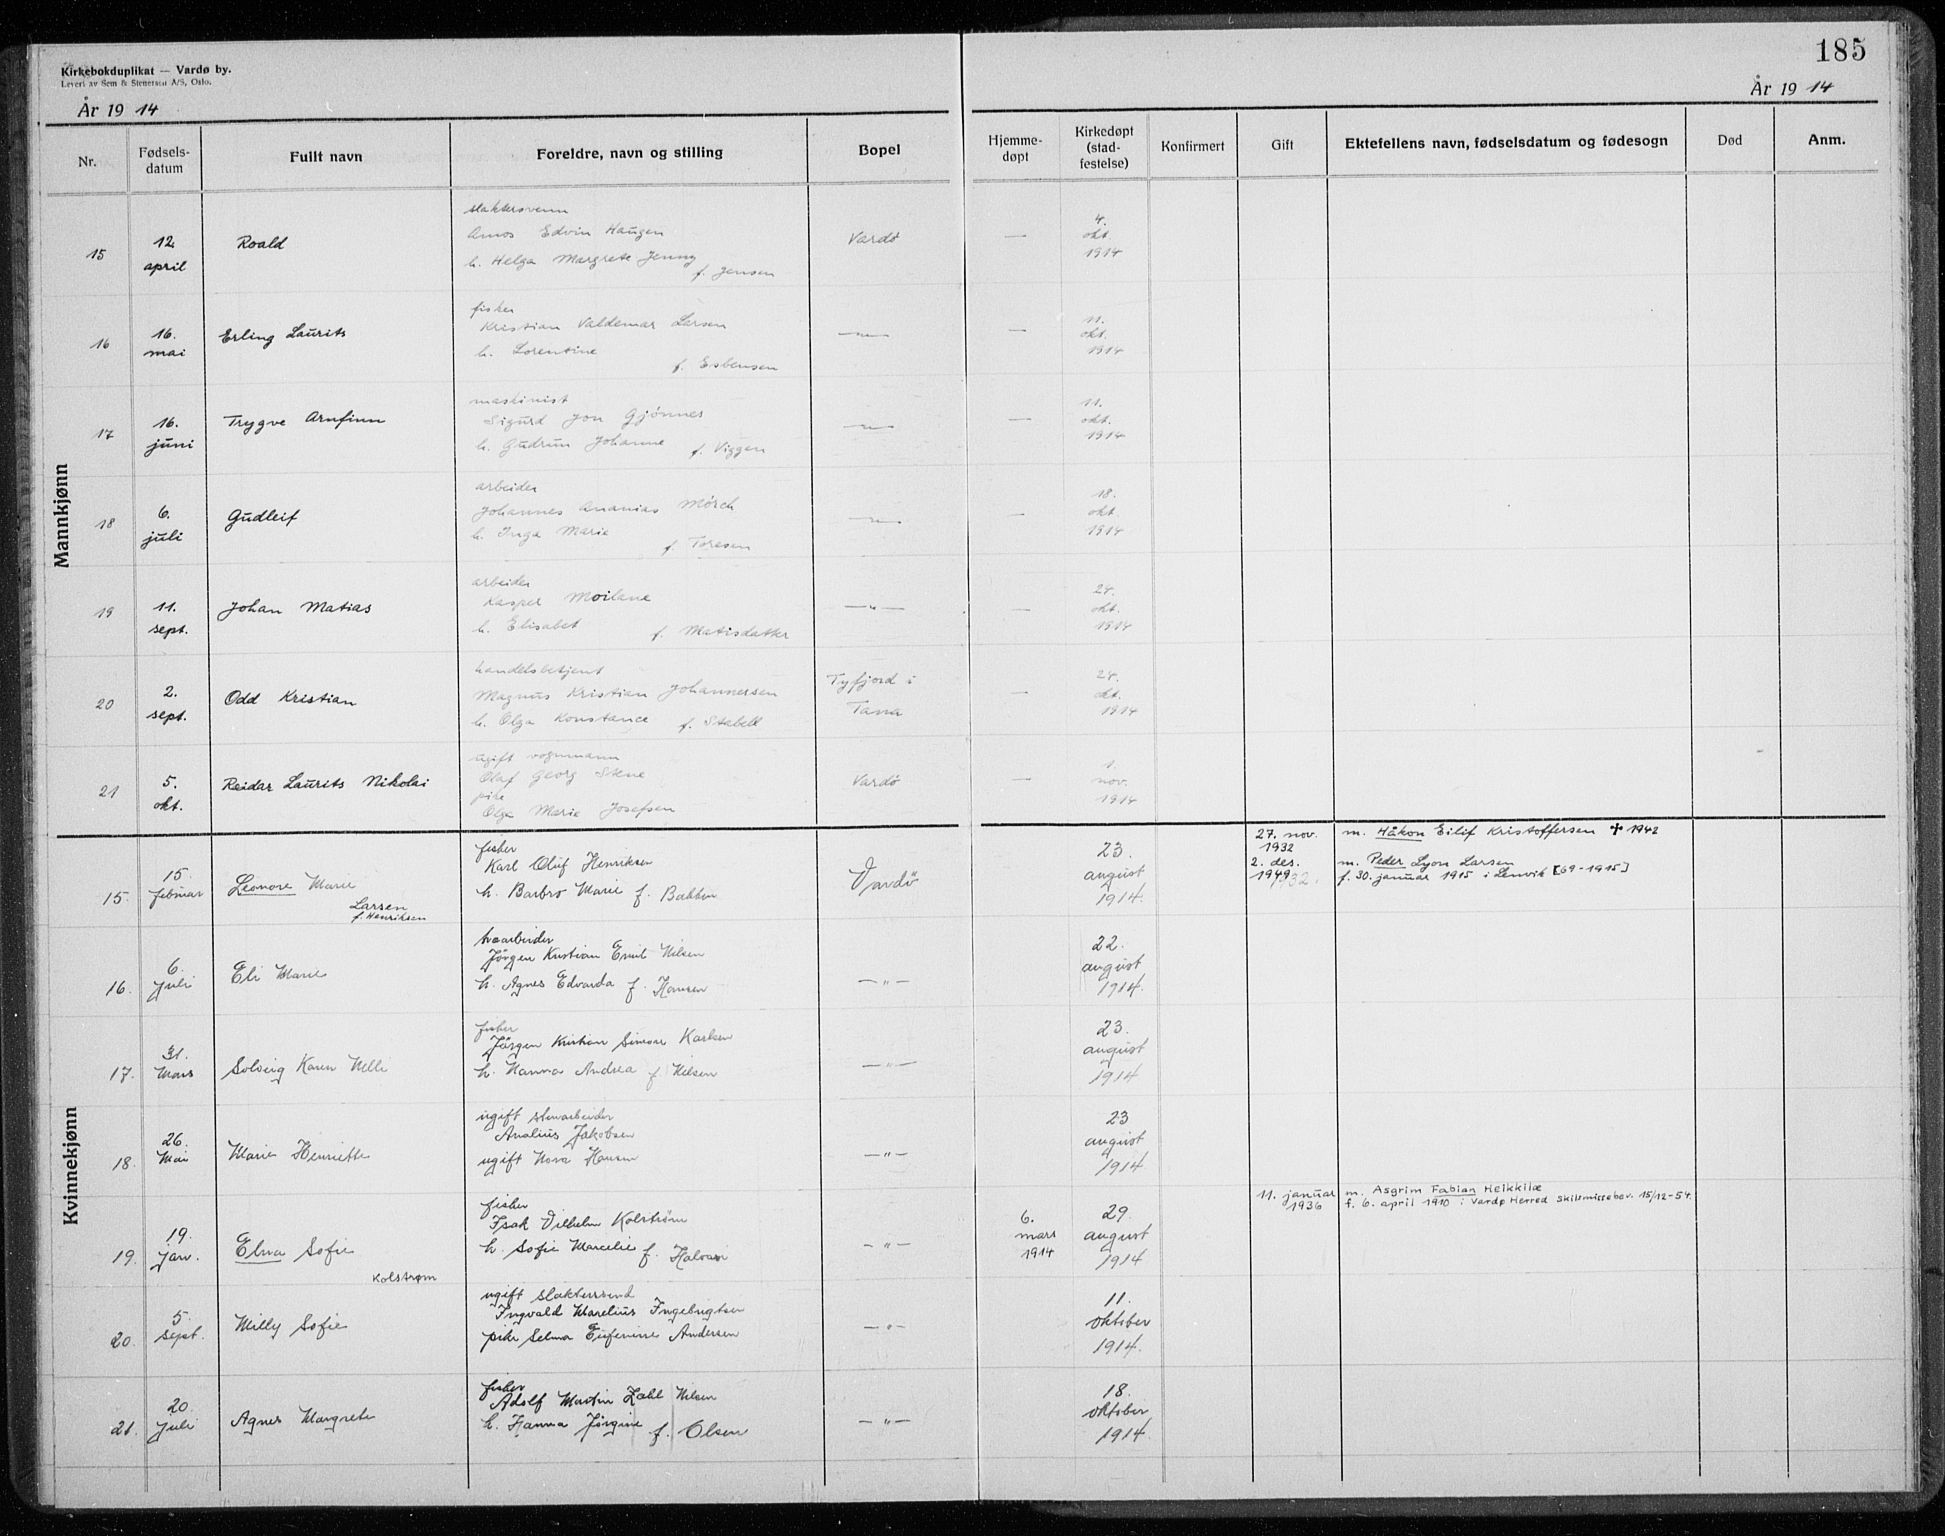 185
Kirkebokduplikat — Vardø by.
Levert av Sem & Stenersen A/S, Oslo.
År 19 14
År 19 14
Nr.
Fødsels-
datum
Fullt navn
Foreldre, navn og stilling
Bopel
Hjemme-
døpt
Kirkedøpt
(stad-
festelse)
Konfirmert
Gift
Ektefellens navn, fødselsdatum og fødesogn
Død
Anm.
Mannkjønn
15
12.
april
Roald
slaktersvenn
Amos Edvin Haugen
h. Helga Margrete Jenny
f. Jensen
Vardø
—
4.
okt.
1914
16
16.
mai
Erling Laurits
fisker
Kristian Valdemar Larsen
h. Lorentine
f. Esbensen
—"—
—
11.
okt.
1914
17
16.
juni
Trygve Arnfinn
maskinist
Sigurd Jon Gjönnes
h. Gudrun Johanne f. Viggen
—"—
—
11.
okt.
1914
18
6.
juli
Gudleif
arbeider
Johannes Ananias Mörch
h. Inga Marie
f. Toresen
—"—
—
18.
okt.
1914
19
11.
sept.
Johan Matias
arbeider
Kasper Moilane
h. Elisabet f. Matisdatter
—"—
—
24.
okt.
1914
20
2.
sept.
Odd Kristian
handelsbetjent
Magnus Kristian Johannessen
h. Olga Konstance f. Stabell
Tyfjord i
Tana
—
24.
okt.
1914
21
5.
okt.
Reidar Laurits Nikolai
ugift vognmann
Olaf Georg Stene
pike
Olga Marie Josefsen
Vardø
—
1.
nov.
1914
Kvinnekjønn
15.
15.
februar
Leonore Marie
Larsen
f. Henriksen
fisker
Karl Oluf Henriksen
h. Barbro Marie f. Bakken
Vardö
23.
august
1914.
27. nov.
1932
2. des.
1949
m. Håkon Eilif Kristoffersen ✝ 1942
m. Peder Lyon Larsen
f. 30. januar 1915 i Lenvik [69-1915]
16.
6.
juli
Eli Marie
Jörgen Kristian Emil Nilsen
h. Agnes Edvarda f. Hansen
—"—
22.
august
1914.
17.
31.
Mars
Solveig Karen Nelli
fisker
Jörgen Kristian Simon Karlsen
h. Hanna Andrea f. Nilsen
—"—
23.
august
1914
18.
26.
Mai
Marie Henriette
ugift stenarbeider
Analius Jakobsen
ugift Nora Hansen
—"—
23
august
1914
19.
19.
jan.
Elna Sofie
Kolstrøm
fisker
Isak Vilhelm Kolström
h. Sofie Marcelie f. Halvari
—"—
6.
mars
1914
29.
august
1914
11. januar
1936
m. Asgrim Fabian Heikkilæ
f. 6. april 1910 i Vardø Herred skilsmissebev. 15/12-54.
20.
5.
sept.
Milly Sofie
ugift slaktersvend
Ingvald Marelius Ingebrigtsen
pike Selma Eufenine Andersen
—"—
11.
oktober
1914.
21.
20.
Juli
Agnes Margrete
fisker
Adolf Martin Zahl Nilsen
h. Hanna Jørgine f. Olsen
—"—
18.
oktober
1914.